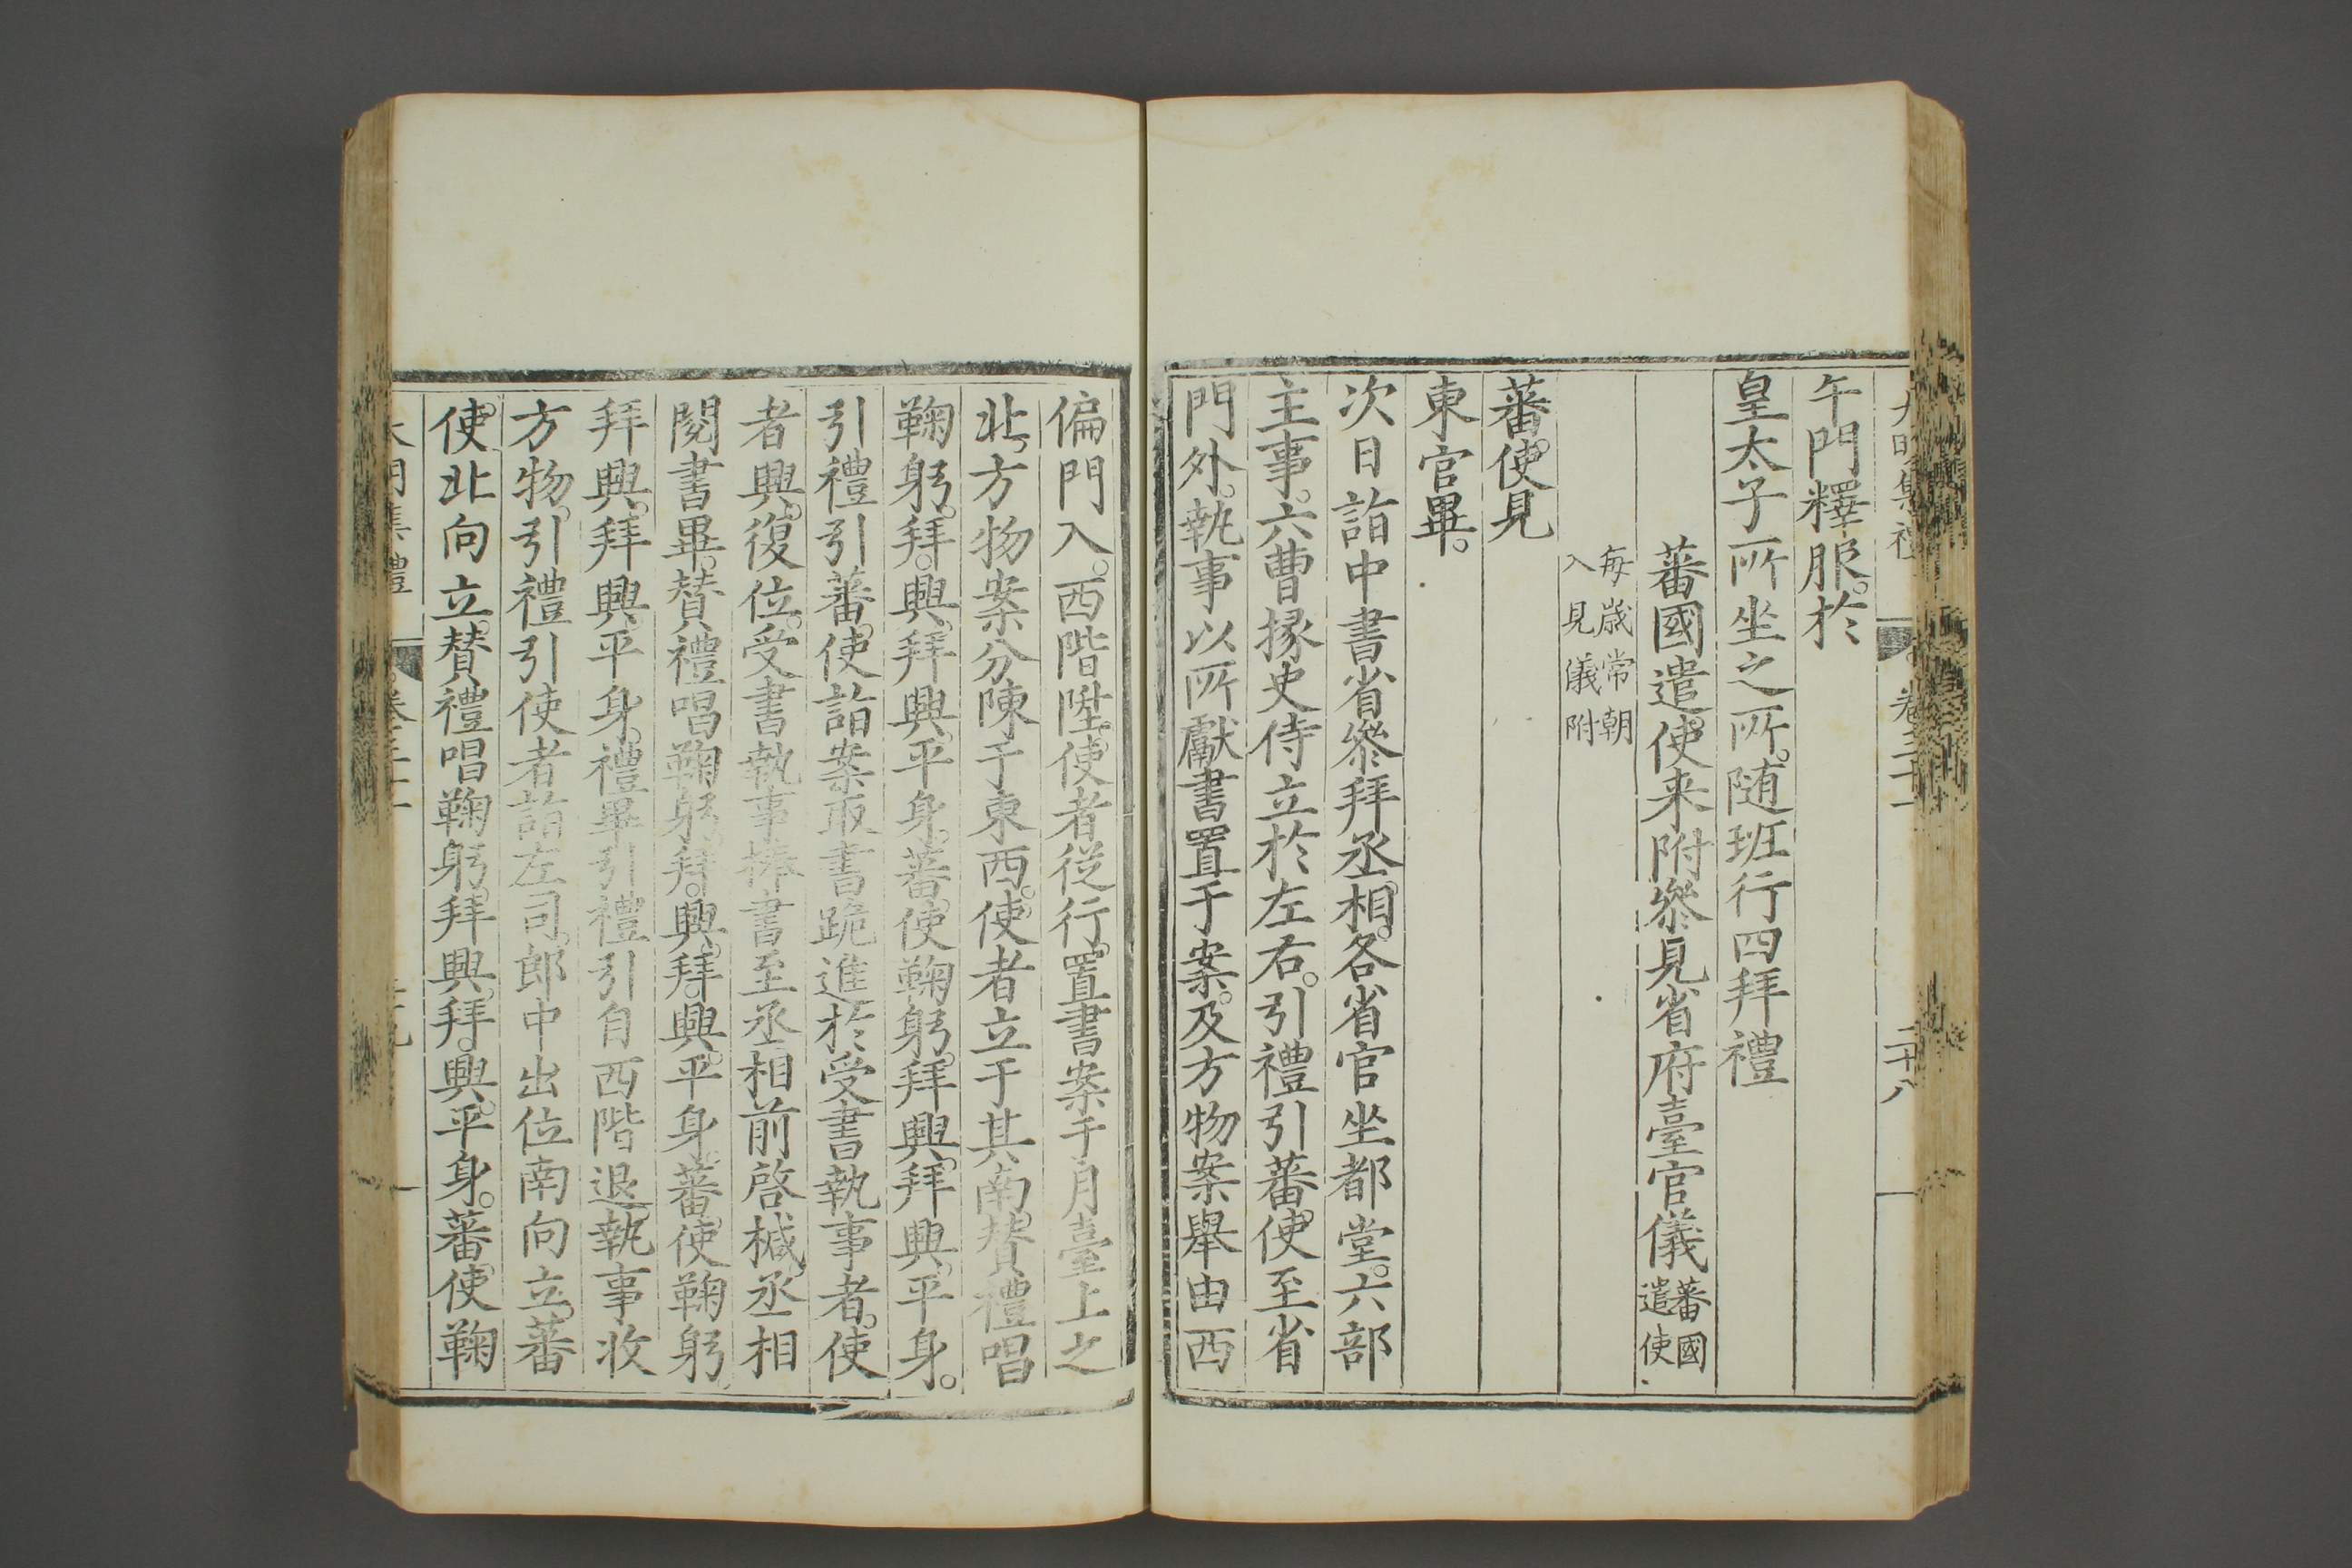 大明集禮 卷三十一 二十八
午門釋服。於
皇太子所坐之所。随班行四拜禮
蕃國遣使来附參見省府臺官儀 蕃國遣使
每歳常朝入見儀附
蕃使見
東宮畢。
次日詣中書省參拜丞相。各省官坐都堂。六部
主事。六曹掾史侍立於左右。引禮引蕃使至省
門外。執事以所獻書置于案。及方物案舉由西
偏門入。西階陞。使者從行。置書案于月臺上之
北。方物案分陳于東西。使者立于其南。賛禮唱
鞠躬。拜。興。拜興。平身。蕃使鞠躬。拜興。拜興。平身。
引禮引蕃使詣案取書跪進於受書執事者。使
者興。復位。受書執事捧書至丞相前啓椷。丞相
閱書畢。賛禮唱鞠躬。拜。興。拜。興。平身。蕃使鞠躬
拜興。拜興平身。禮畢引禮引自西階退執事收
方物。引禮引使者詣左司。郎中出位南向立。蕃
使北向立。賛禮唱鞠躬。拜興。拜。興。平身。蕃使鞠
大明集禮 卷三十一